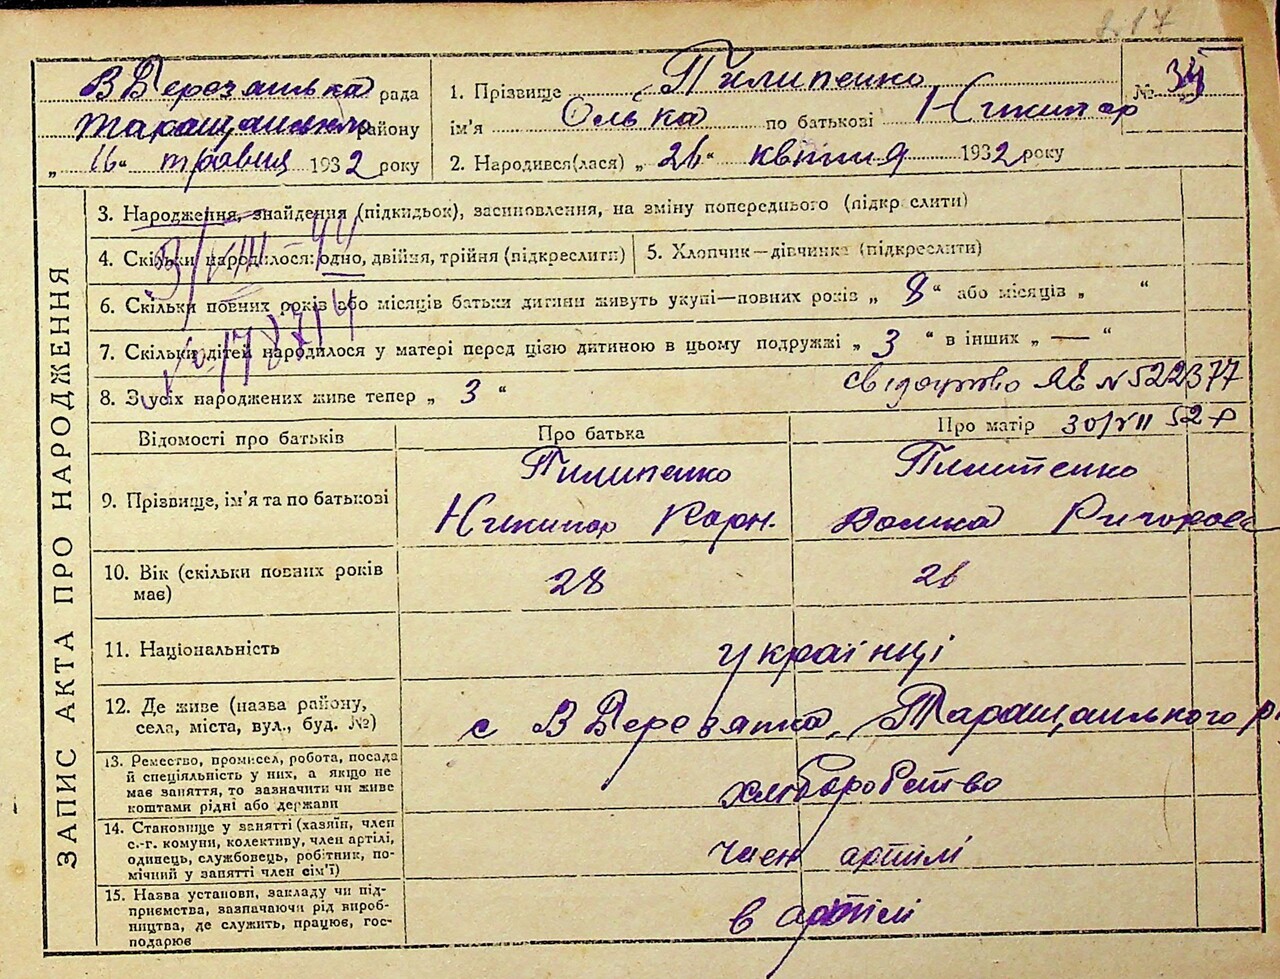 217
В Березанська рада
Таращанського району
„ 16 “ травня 1932 року
1. Прізвище Пилипенко № 35
ім'я Олька по батькові Никипор
2. Народився(лася) „ 26 “ квітня 1932 року
ЗАПИС АКТА ПРО НАРОДЖЕННЯ
3. Народження, знайдення (підкидьок), засиновлення, на зміну попереднього (підкр слити)
4. Скільки народилося: одно, двійня, трійня (підкреслити)
5. Хлопчик—дівчинка (підкреслити)
З/VIII-44
6. Скільки повних років або місяців батьки дитини живуть укупі—повних років „ 8 “ або місяців „ “
7. Скільки дітей народилося у матері перед цією дитиною в цьому подружжі „ 3 “ в інших „ — “
8. З усіх народжених живе тепер „ 3 “
свідоцтво ЯЕ N 522377
30/VII 52 р
Відомості про батьків
Про батька
Про матір
9. Прізвище, ім'я та по батькові
Пилипенко
Никипор Карн.
Пилипенко
Волька Ригоров
10. Вік (скільки повних років
має)
28
26
11. Національність
українці
12. Де живе (назва району,
села, міста, вул., буд. №)
с В Березянка, Таращанського р
13. Ремество, промисел, робота, посада
й спеціяльність у них, а якщо не
має заняття, то зазначити чи живе
коштами рідні або держави
хліборобство
14. Становище у занятті (хазяїн, член
с.-г. комуни, колективу, член артілі,
одинець, службовець, робітник, по-
мічний у занятті член сім'ї)
член артілі
15. Назва установи, закладу чи під-
приємства, зазначаючи рід вироб-
ництва, де служить, працює, гос-
подарює
в артілі